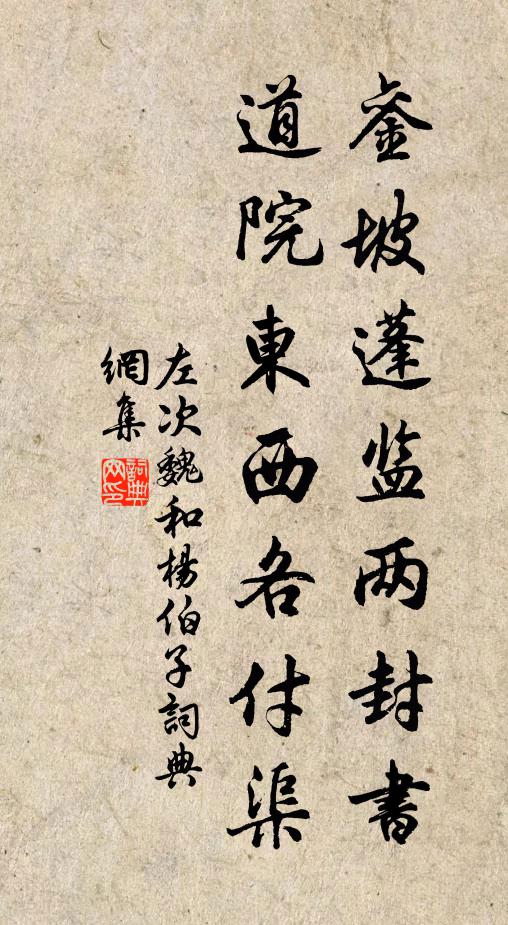 銮坡蓬监两封書
道院東西各付渠
左次魏和楊伯子詞典
網集
詞典
网印